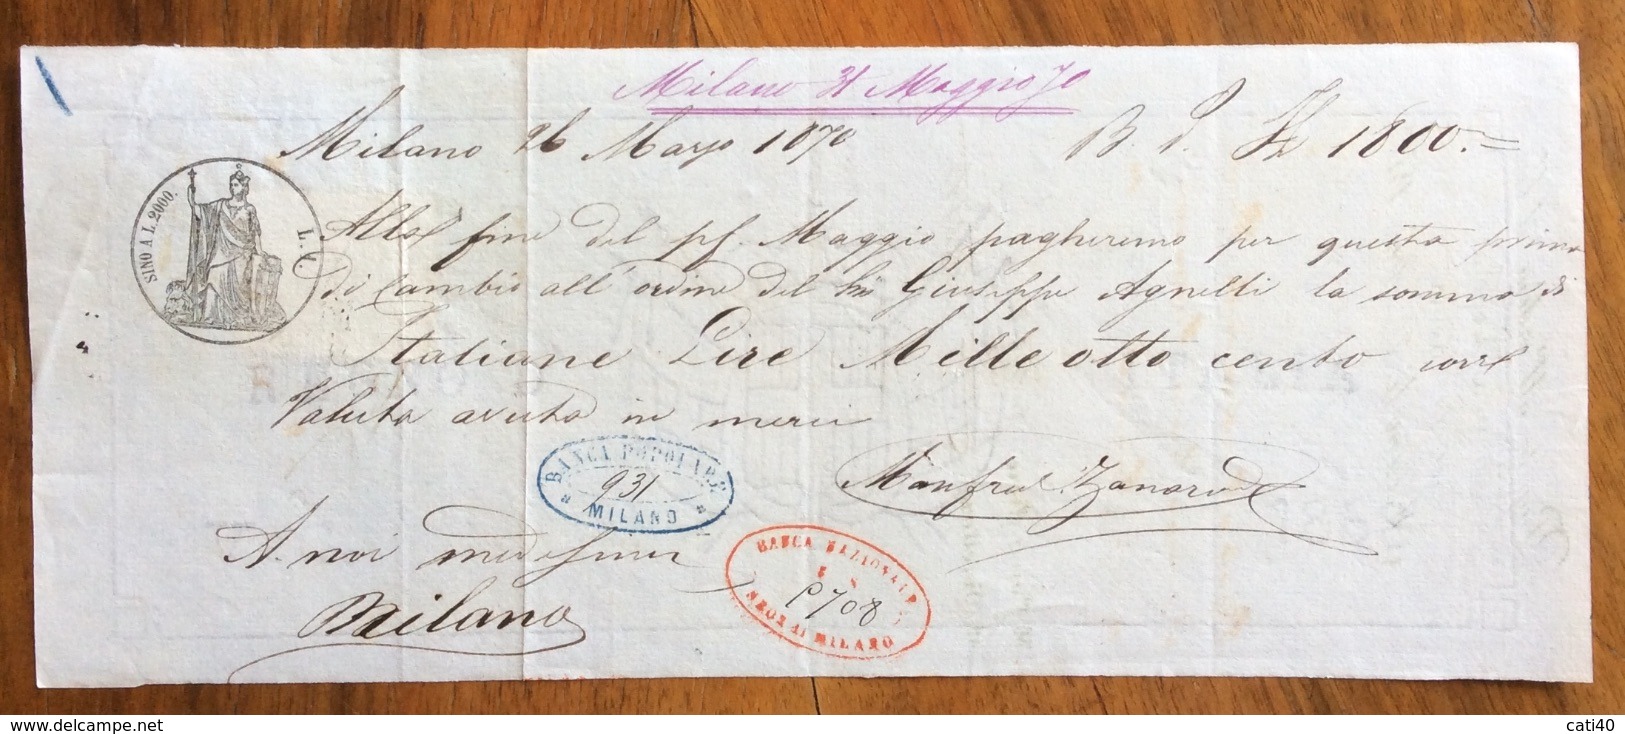 Milano 31 Maggio 70
Milano 26 Marzo 1870 B. P. £ 1800.=
SINO A L.2000.
L. 1.
Alla fine del pf. Maggio pagheremo per questa prima
di Cambio all'ordine del Sig Giuseppe Agnelli la somma di
Italiane Lire Mille otto cento
Valuta avuta in merci
BANCA POPOLARE
931
MILANO
Manfredi Zanardi
A noi medesimi
Milano
BANCA NAZIONALE
P708
MILANO
cati40